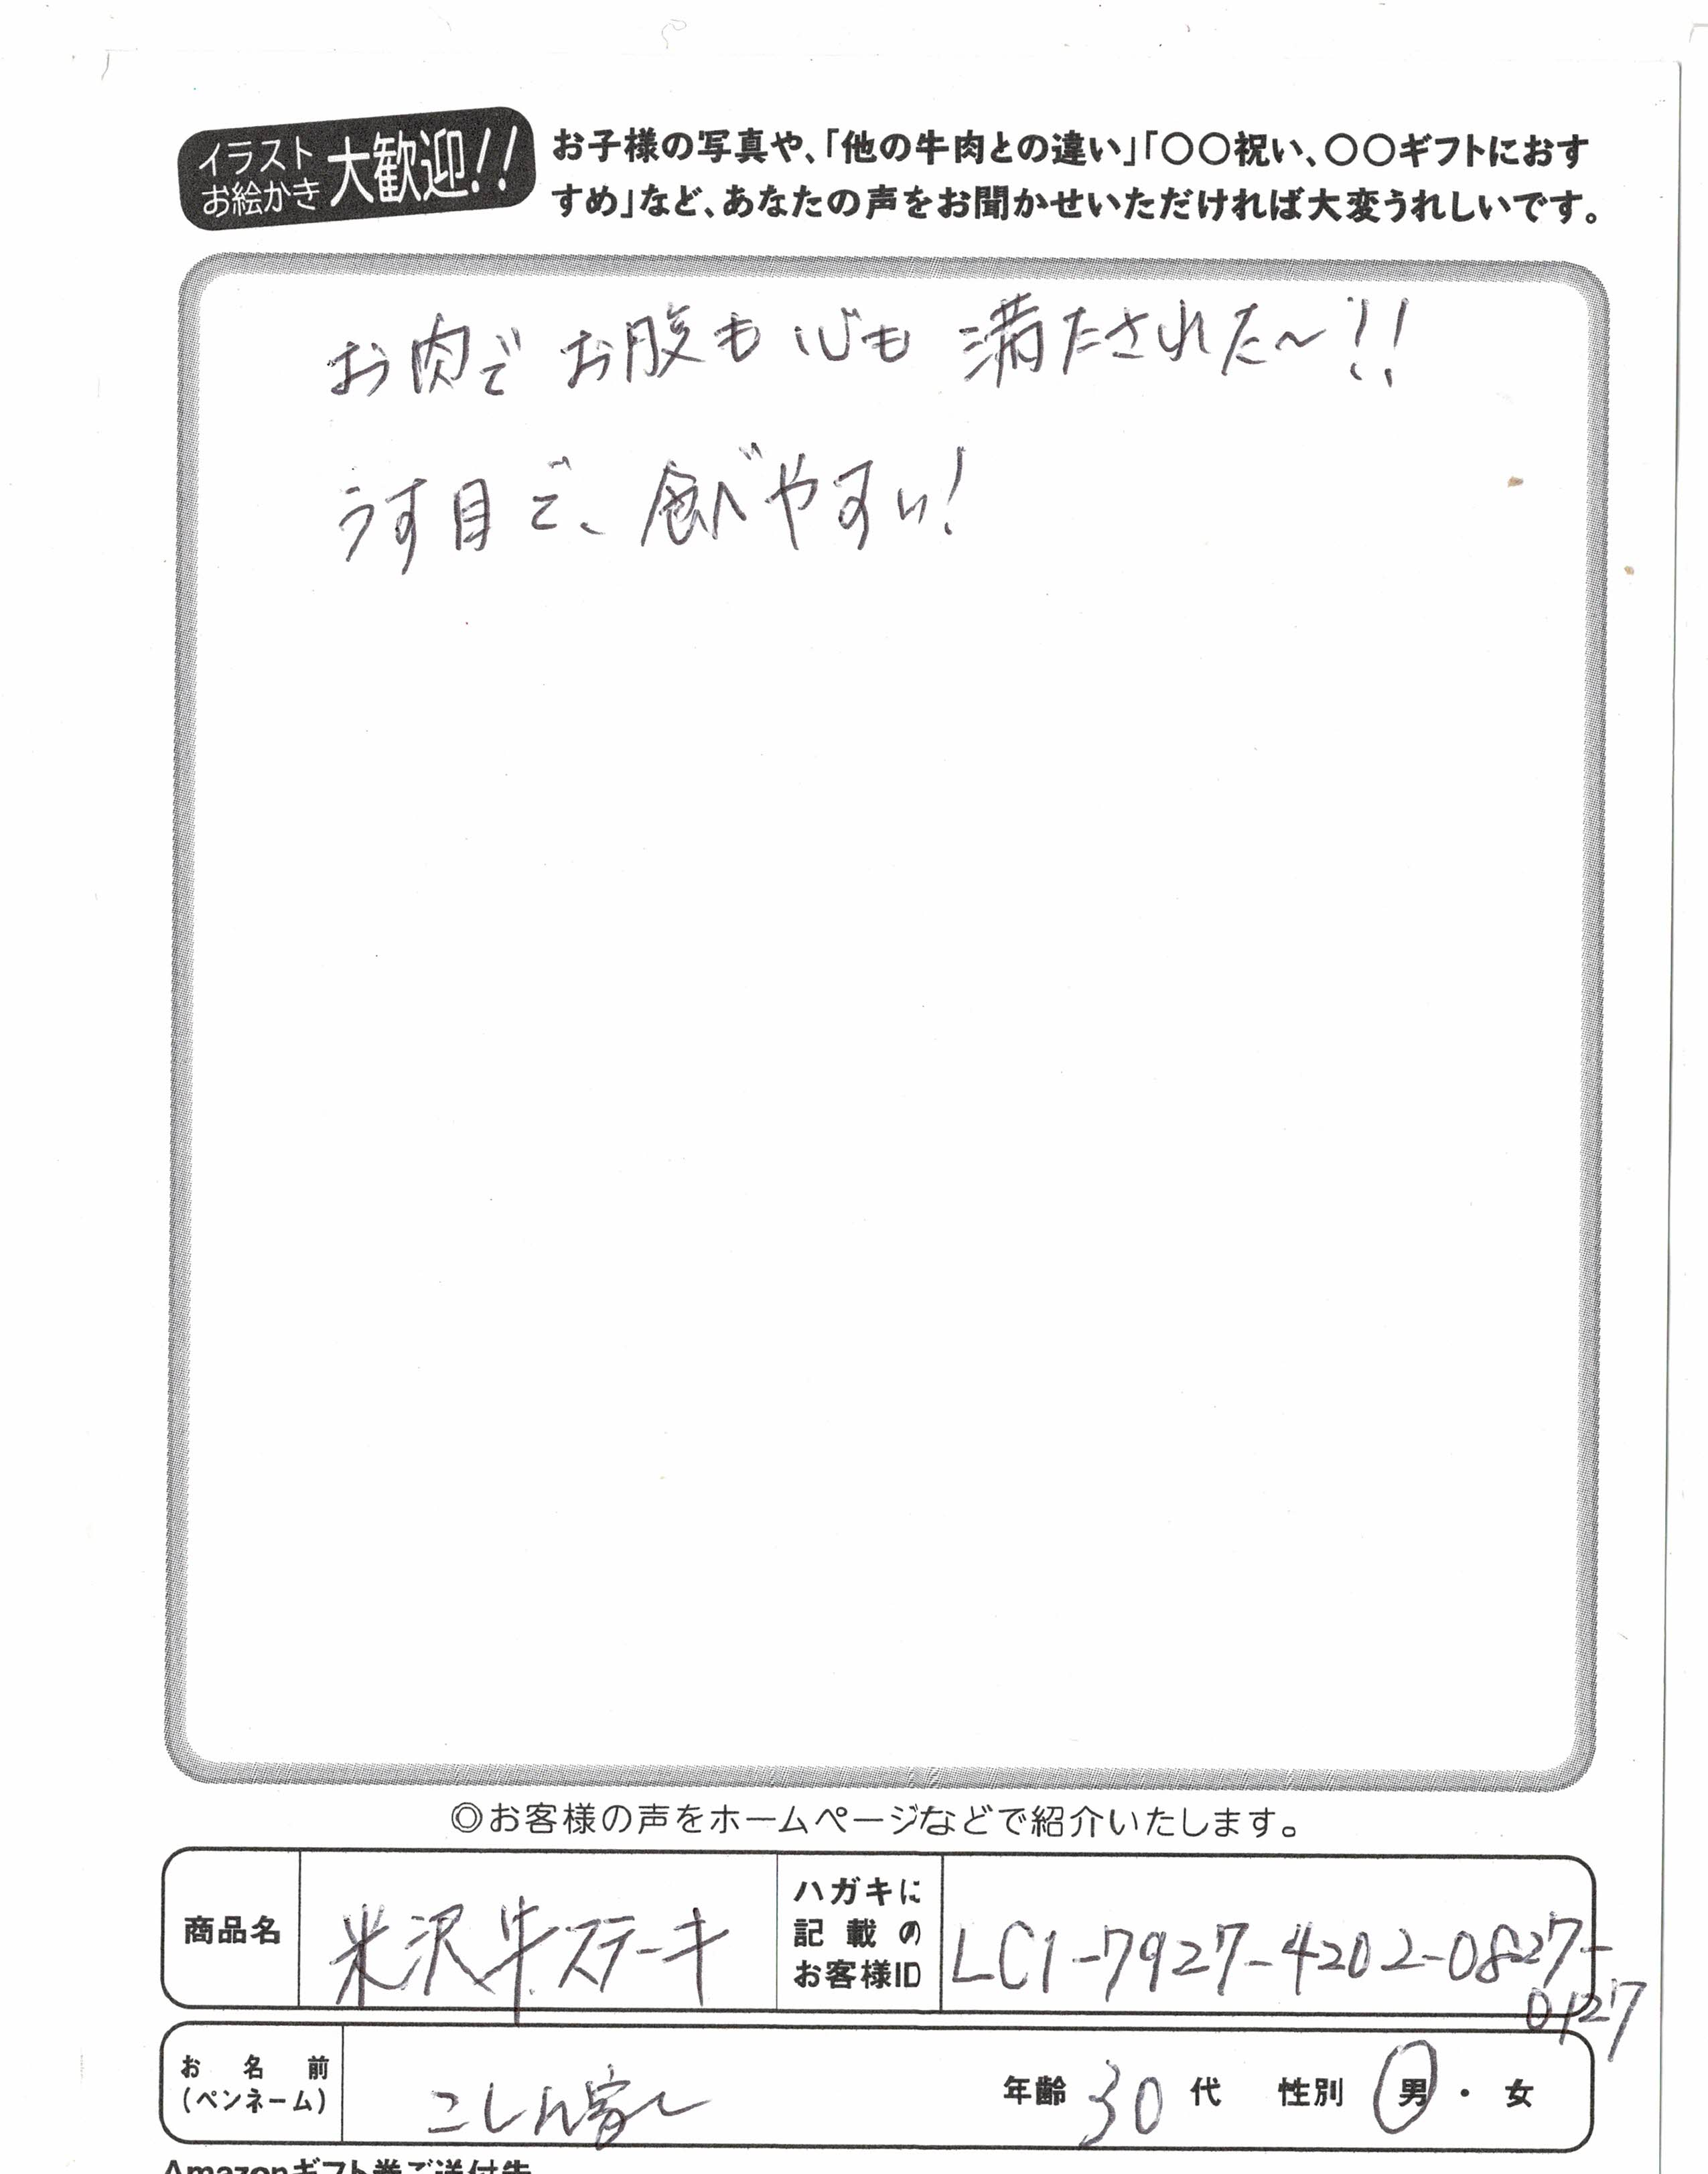 イラスト
お絵かき
大歓迎!!
お子様の写真や、「他の牛肉との違い」「〇〇祝い、〇〇ギフトにおす
すめ」など、あなたの声をお聞かせいただければ大変うれしいです。
お肉で お腹も 心も 満たされた〜!!
うす目で、食べやすい!
◎お客様の声をホームページなどで紹介いたします。
商品名 米沢牛ステーキ
ハガキに
記載の
お客様ID
LC1-7927-4202-0827-
0127
お名前
(ペンネーム)
年齢 30 代 性別 男・女
Amazonギフト券ご送付先